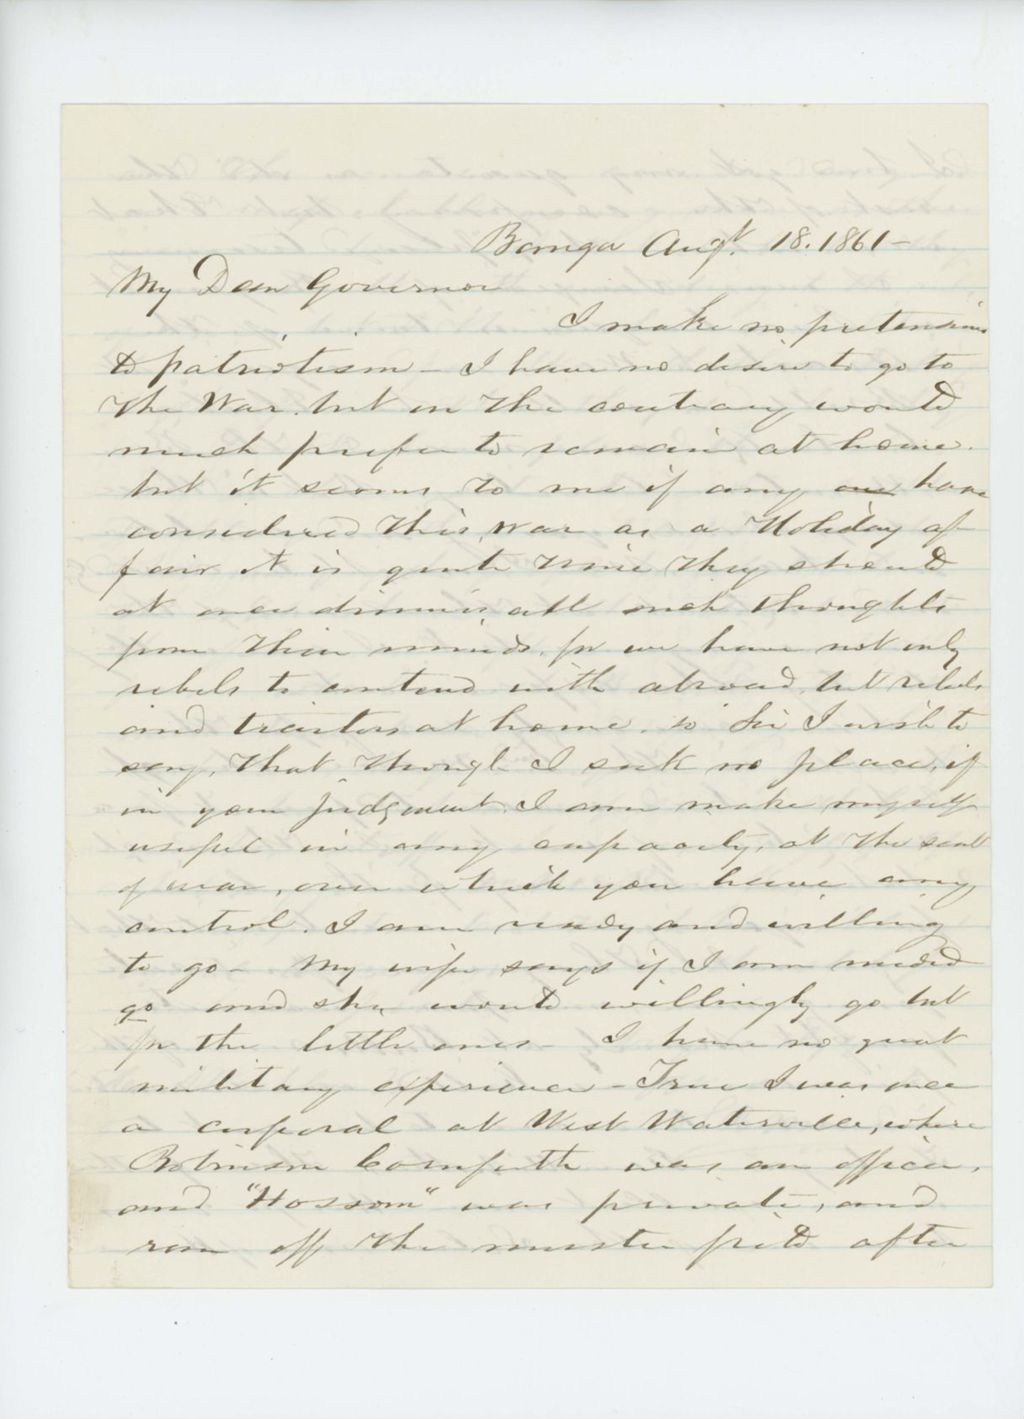 Bangor Augt. 18. 1861 -
My Dear Governor
I make no pretensions
to patriotism - I have no desire to go to
the War. but on the contrary would
much prefer to remain at home.
but it seems to me if any have
considered this War as a Holiday af-
fair it is quite time they should
at once dismiss all such thoughts
from their minds, for we have not only
rebels to contend with abroad, but rebels
and traitors at home. so Sir I wish to
say, that though I seek no place, if
in your judgment I can make myself
useful in any capacity, at the seat
of war, over which you have any
control. I am ready and willing
to go - My wife says if I am needed
go and she would willingly go but
for the little ones - I have no great
military experience - True I was once
a corporal at West Waterville, where
Robinson Cornforth was an officer,
and "Hossom" was private, and
ran off the muster field after